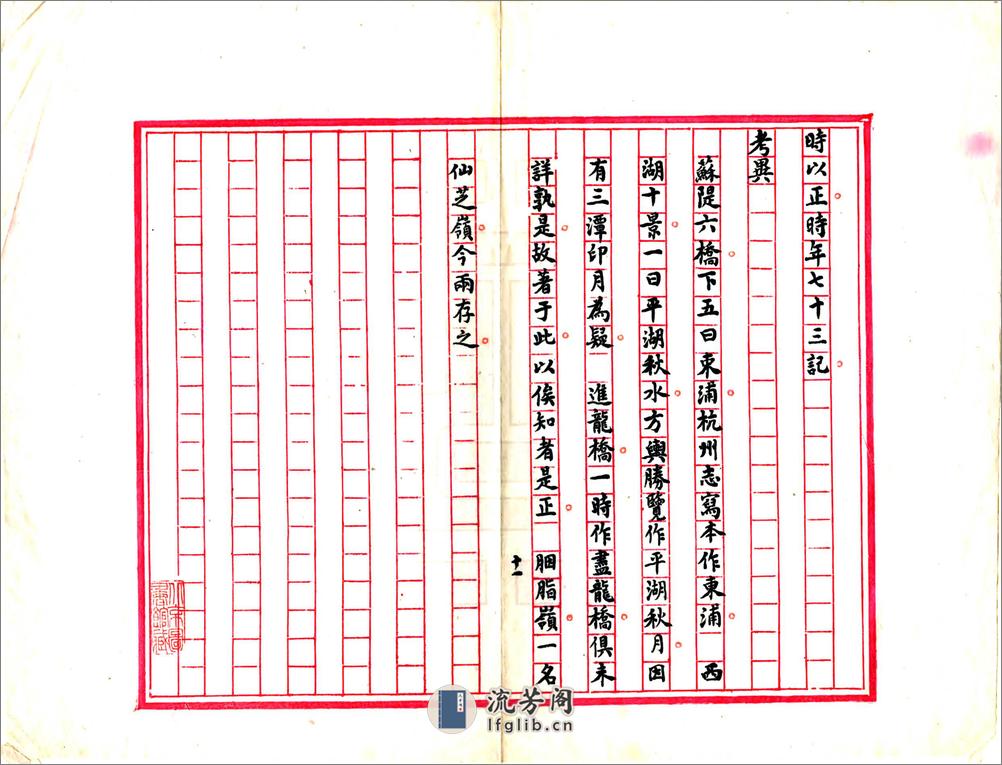 時以正時年七十三記
考異
蘇隄六橋下五曰東浦杭州志寫本作東浦　西
湖十景一曰平湖秋水方輿勝覽作平湖秋月因
有三潭印月為疑　進龍橋一時作盡龍橋俱未
詳孰是故著于此以俟知者是正　胭脂嶺一名
十一
仙芝嶺今兩存之
北京圖
書館藏
流芳阁
lfglib.cn